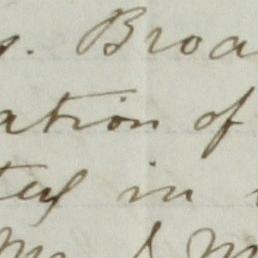 s. Broa
ation of
in
Mr. & M